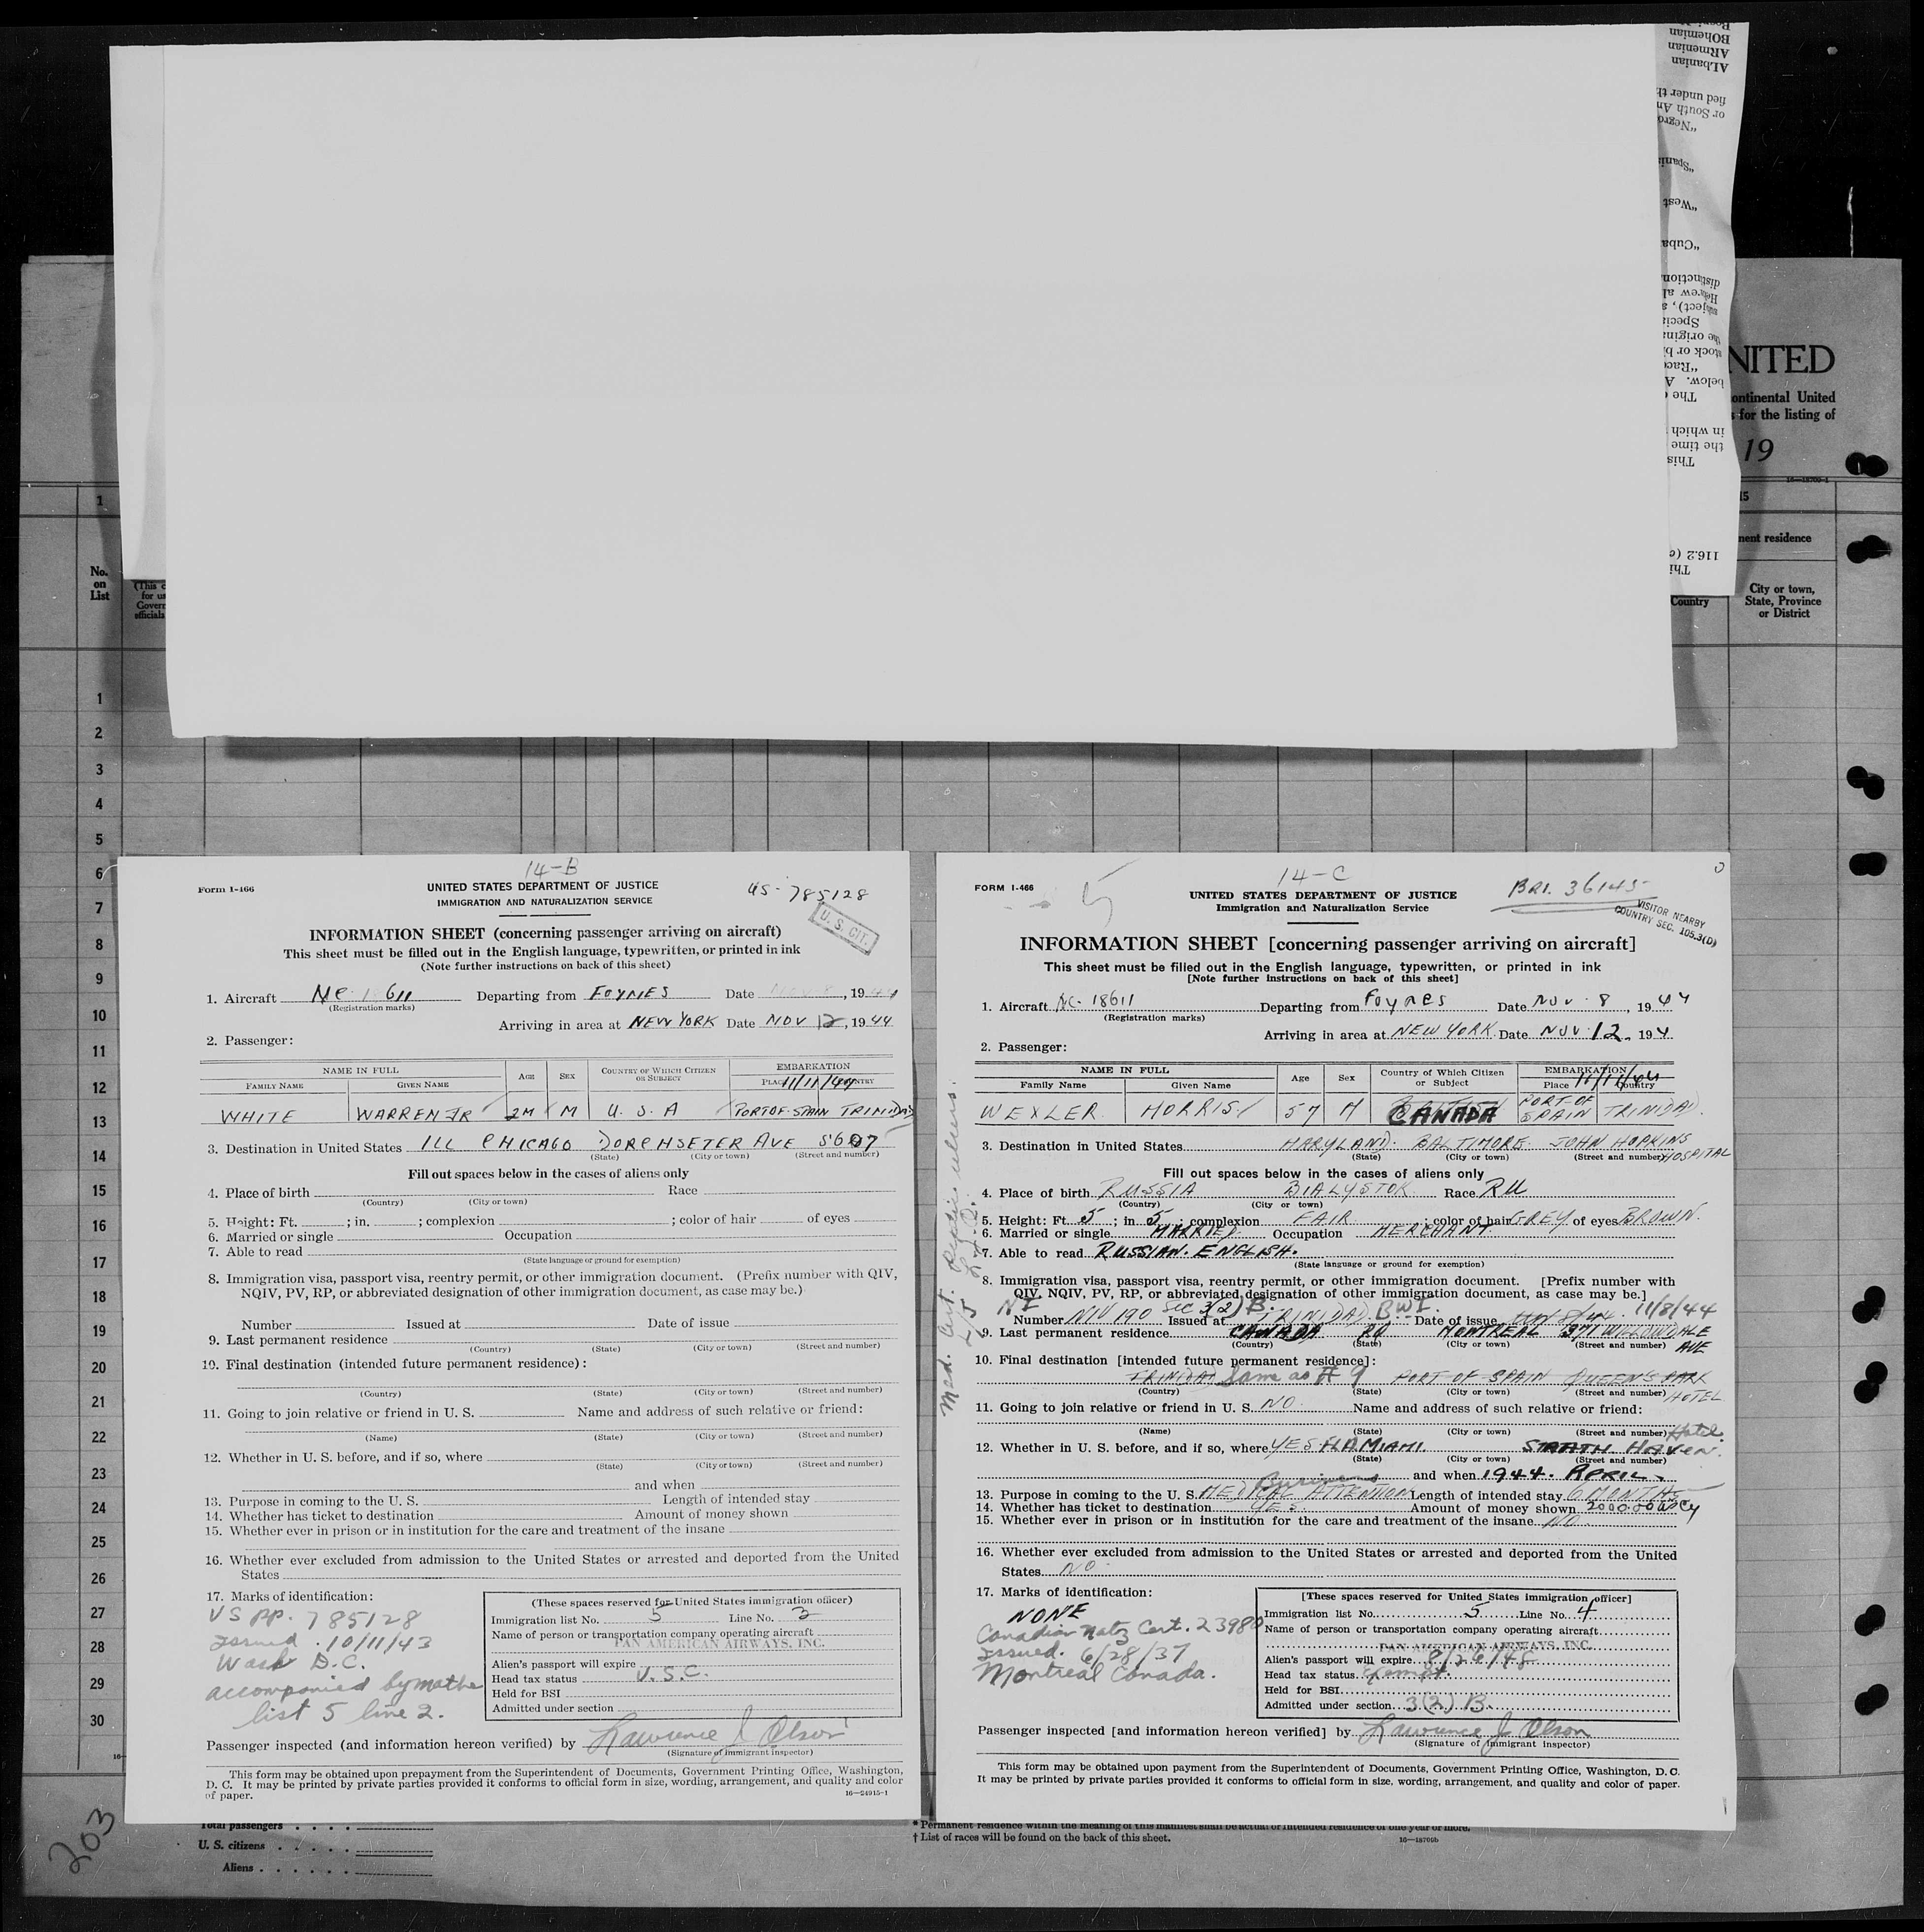 BOhemian
ARmenian
ALbanian
fied under th
or South Am
"Negro
"Spanis
"West
"Cuba
distinction
Hebrew al
subject), a
Specia
the origina
stock or bl
"Race
below. A
The
in which
the time
This
116.2 (c
Thi
NITED
ontinental United
s for the listing of
19
16—18709-1
15
1
nent residence
No.
on
List
(This c
for us
Govern
officials
Country
City or town,
State, Province
or District
1
2
3
4
5
6
7
8
9
10
11
12
13
14
15
16
17
18
19
20
21
22
23
24
25
26
27
28
29
30
14-B
Form I-466
UNITED STATES DEPARTMENT OF JUSTICE
IMMIGRATION AND NATURALIZATION SERVICE
US-785128
U. S. CIT.
INFORMATION SHEET (concerning passenger arriving on aircraft)
This sheet must be filled out in the English language, typewritten, or printed in ink
(Note further instructions on back of this sheet)
1. Aircraft NC 18611 Departing from FOYNES Date NOV 8, 1944
(Registration marks)
Arriving in area at NEW YORK Date NOV 12, 1944
2. Passenger:
NAME IN FULL AGE SEX COUNTRY OF WHICH CITIZEN OR SUBJECT EMBARKATION
FAMILY NAME GIVEN NAME PLACE 11/11/44 COUNTRY
WHITE WARREN JR 2M M U. S. A PORT OF SPAIN TRINIDAD
3. Destination in United States ILL CHICAGO DORCHSETER AVE 5607
(State) (City or town) (Street and number)
Fill out spaces below in the cases of aliens only
4. Place of birth Race
(Country) (City or town)
5. Height: Ft. ; in. ; complexion ; color of hair of eyes
6. Married or single Occupation
7. Able to read
(State language or ground for exemption)
8. Immigration visa, passport visa, reentry permit, or other immigration document. (Prefix number with QIV,
NQIV, PV, RP, or abbreviated designation of other immigration document, as case may be.)
Number Issued at Date of issue
9. Last permanent residence
(Country) (State) (City or town) (Street and number)
10. Final destination (intended future permanent residence):
(Country) (State) (City or town) (Street and number)
11. Going to join relative or friend in U. S. Name and address of such relative or friend:
(Name) (State) (City or town) (Street and number)
12. Whether in U. S. before, and if so, where
(State) (City or town) (Street and number)
and when
13. Purpose in coming to the U. S. Length of intended stay
14. Whether has ticket to destination Amount of money shown
15. Whether ever in prison or in institution for the care and treatment of the insane
16. Whether ever excluded from admission to the United States or arrested and deported from the United
States
17. Marks of identification:
US pp. 785128
Issued 10/11/43
Wash D.C.
accompanied by mothe
list 5 line 2.
(These spaces reserved for United States immigration officer)
Immigration list No. 5 Line No. 3
Name of person or transportation company operating aircraft
PAN AMERICAN AIRWAYS, INC.
Alien's passport will expire
Head tax status U.S.C.
Held for BSI
Admitted under section
Passenger inspected (and information hereon verified) by Lawrence J Olson
(Signature of immigrant inspector)
This form may be obtained upon prepayment from the Superintendent of Documents, Government Printing Office, Washington,
D. C. It may be printed by private parties provided it conforms to official form in size, wording, arrangement, and quality and color
of paper.
16—24915-1
14-C
5
FORM I-466
UNITED STATES DEPARTMENT OF JUSTICE
Immigration and Naturalization Service
BRI. 36145
VISITOR NEARBY
COUNTRY SEC. 105.3(D)
INFORMATION SHEET [concerning passenger arriving on aircraft]
This sheet must be filled out in the English language, typewritten, or printed in ink
[Note further instructions on back of this sheet]
1. Aircraft NC-18611 Departing from FOYNES Date NOV 8, 1944
(Registration marks)
Arriving in area at NEW YORK Date NOV 12, 194
2. Passenger:
NAME IN FULL Age Sex Country of Which Citizen or Subject EMBARKATION
Family Name Given Name Place 11/11/44 Country
WEXLER MORRIS 57 M CANADA PORT OF SPAIN TRINIDAD.
3. Destination in United States MARYLAND BALTIMORE JOHN HOPKINS HOSPITAL
(State) (City or town) (Street and number)
Fill out spaces below in the cases of aliens only
4. Place of birth RUSSIA BIALYSTOK Race RU
(Country) (City or town)
5. Height: Ft. 5; in. 5; complexion FAIR; color of hair GREY of eyes BROWN.
6. Married or single MARRIED Occupation MERCHANT
7. Able to read RUSSIAN. ENGLISH.
(State language or ground for exemption)
8. Immigration visa, passport visa, reentry permit, or other immigration document. [Prefix number with
QIV, NQIV, PV, RP, or abbreviated designation of other immigration document, as case may be.]
Number NIV 190 Sec 3(2) B. Issued at TRINIDAD. BWI. Date of issue 11/8/44
9. Last permanent residence CANADA PQ MONTREAL 371 WILLOWDALE AVE
(Country) (State) (City or town) (Street and number)
10. Final destination [intended future permanent residence]:
TRINIDAD Same as # 9 PORT OF SPAIN QUEEN'S PARK HOTEL
(Country) (State) (City or town) (Street and number)
11. Going to join relative or friend in U. S. NO. Name and address of such relative or friend:
(Name) (State) (City or town) (Street and number)
12. Whether in U. S. before, and if so, where YES FLA. MIAMI STRATH HAVEN Hotel
(State) (City or town) (Street and number)
and when 1944. APRIL
13. Purpose in coming to the U. S. Business MEDICAL ATTENTION Length of intended stay 6 MONTHS
14. Whether has ticket to destination YES. Amount of money shown 2000.00
15. Whether ever in prison or in institution for the care and treatment of the insane NO
16. Whether ever excluded from admission to the United States or arrested and deported from the United
States NO
17. Marks of identification:
NONE
Canadian Natz Cert. 23980
Issued. 6/28/37
Montreal Canada.
[These spaces reserved for United States immigration officer]
Immigration list No. 5 Line No. 4
Name of person or transportation company operating aircraft
PAN AMERICAN AIRWAYS, INC.
Alien's passport will expire 8/26/48
Head tax status. Exempt.
Held for BSI
Admitted under section 3(2) B.
Passenger inspected [and information hereon verified] by Lawrence J Olson
(Signature of immigrant inspector)
This form may be obtained upon payment from the Superintendent of Documents, Government Printing Office, Washington, D. C.
It may be printed by private parties provided it conforms to official form in size, wording, arrangement, and quality and color of paper.
Med. Cert.
203
Total passengers
U. S. citizens
Aliens
* Permanent residence within the meaning of this manifest shall be actual or intended residence of one year or more.
† List of races will be found on the back of this sheet.
16—18709b